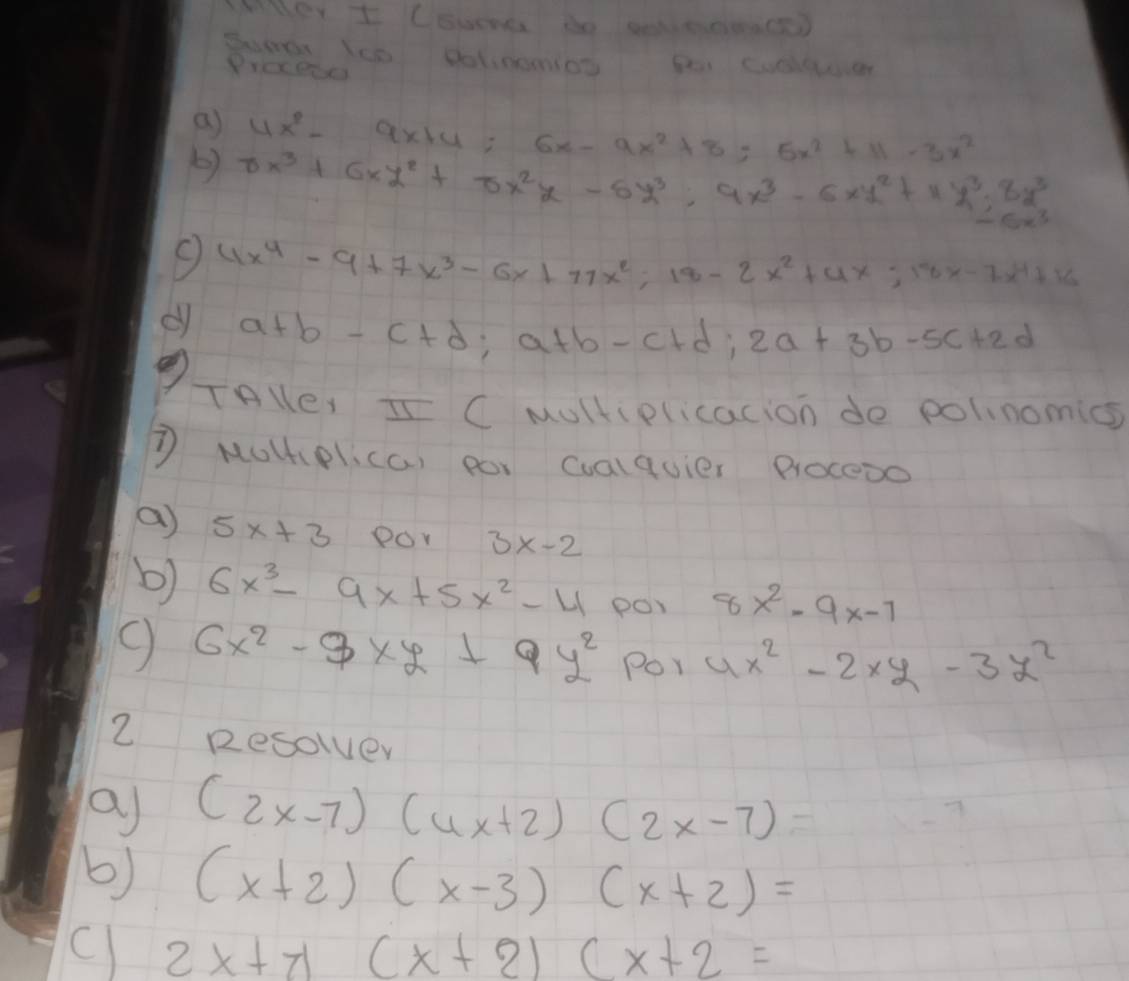 I (suma de polinomios)
Sumar los Polinomios por cualquier
Proceso
a) 4x² - 9x+4 ; 6x - 9x² + 8 ; 5x² + 11 - 3x²
b) 8x³ + 6xy² + 5x²y - 5y³ ; 9x³ - 6xy² + 11y³ ; 8y³
- 6x³
c) 4x⁴ - 9 + 7x³ - 6x + 11x² ; 18 - 2x² + 4x ;
d) a+b - c+d ; a+b - c+d ; 2a + 3b - 5c + 2d
e)
TAller II ( Multiplicación de polinomios
1) Multiplicar por cualquier Proceso
a) 5x+3 por 3x-2
b) 6x³- 9x + 5x² - 4 por 8x² - 9x - 7
c) 6x² - 9xy + 9y² por 4x² - 2xy - 3y²
2 Resolver
a) (2x-7) (4x+2) (2x-7) =
b) (x+2) (x-3) (x+2) =
c) 2x+7) (x+2) (x+2 =